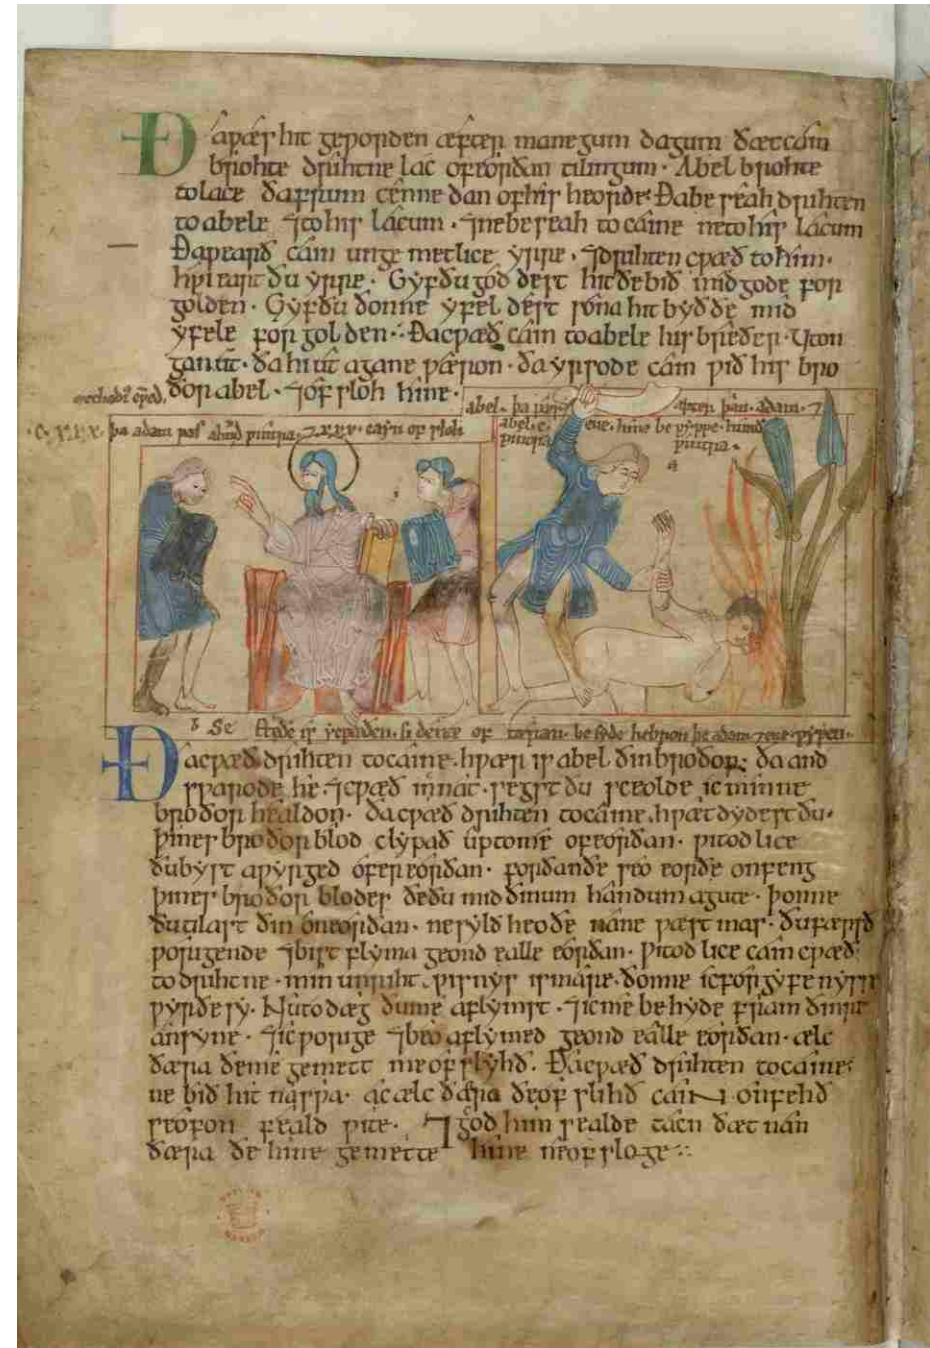 Ða wæs hit geworden æfter manegum dagum ðæt cain
brohte drihtne lac of eorðan tilingum · Abel brohte
to lace ða frumcennedan of his heorde · Ða beseah drihten
to abele ⁊ to his lacum · ⁊ ne beseah to caine ne to his lacum
Ða wearð cain ungemetlice yrre · ⁊ drihten cwæð to him ·
hwi eart ðu yrre · Gyf ðu god dest hit ðe bið mid gode for
golden · Gyf ðu donne yfel dest sona hit byð ðe mid
yfele forgolden · Ða cwæð cain to abele his breðer · Uton
gan ut · ða hi ut agane wæron · ða yrsode cain wið his bro
ðor abel · ⁊ ofsloh hine ·
methodius cwæð
abel · þa
æfter þan · adam · ⁊
þa adam wæs · wintra · ⁊ xxx · cayn ofsloh
abel ·
eue · hine beweppe · hund
wintra ·
Se stede is · of · be suðe hebron þe adam ⁊ eue ·
Ða cwæð drihten to caine · hwær is abel ðin broðor · ða and
swarode he · ⁊ cwæð ic nat · segst ðu sceolde ic minne
broðor healdon · ða cwæð drihten to caine · hwæt dydest ðu ·
þines broðor blod clypað up to me of eorðan · witodlice
ðu byst awyrged ofer eorðan · forðan ðe seo eorðe onfeng
þines broðor blodes ðe ðu mid ðinum handum agute · þonne
ðu tilast ðin on eorðan · ne sylð heo ðe nane wæstmas · ðu færst
worigende ⁊ bist flyma geond ealle eorðan · Witodlice cain cwæð
to drihtne · min unriht wisnys is mare · ðonne ic forgyfenysse
wyrðe sy · Nu to dæg ðu me aflymst · ⁊ ic me behyde fram ðinre
ansyne · ⁊ ic worige ⁊ beo aflymed geond ealle eorðan · ælc
ðæra ðe me gemett me ofslyhð · Ða cwæð drihten to caine ·
ne bið hit na swa · ac ælc ðæra ðe ofslihð cain onfehð
seofon feald wite · ⁊ god him sealde tacn ðæt nan
ðæra ðe hine gemette hine ne ofsloge